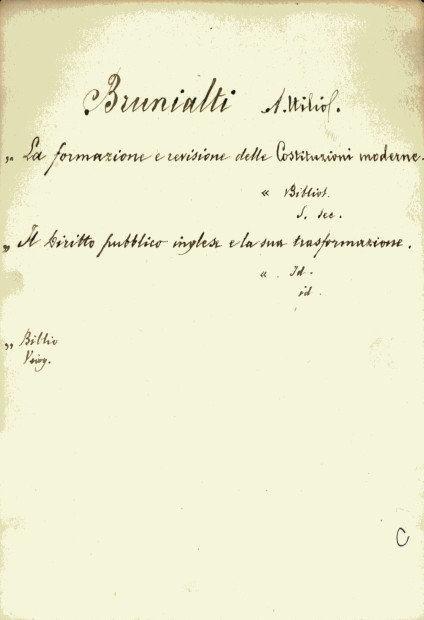 Brunialti Attilio.
„ La formazione e revisione delle Costituzioni moderne.
« Bibliot.
S. sec.
„ Il Diritto pubblico inglese e la sua trasformazione.
« . Id.
id.
„ Biblio
C